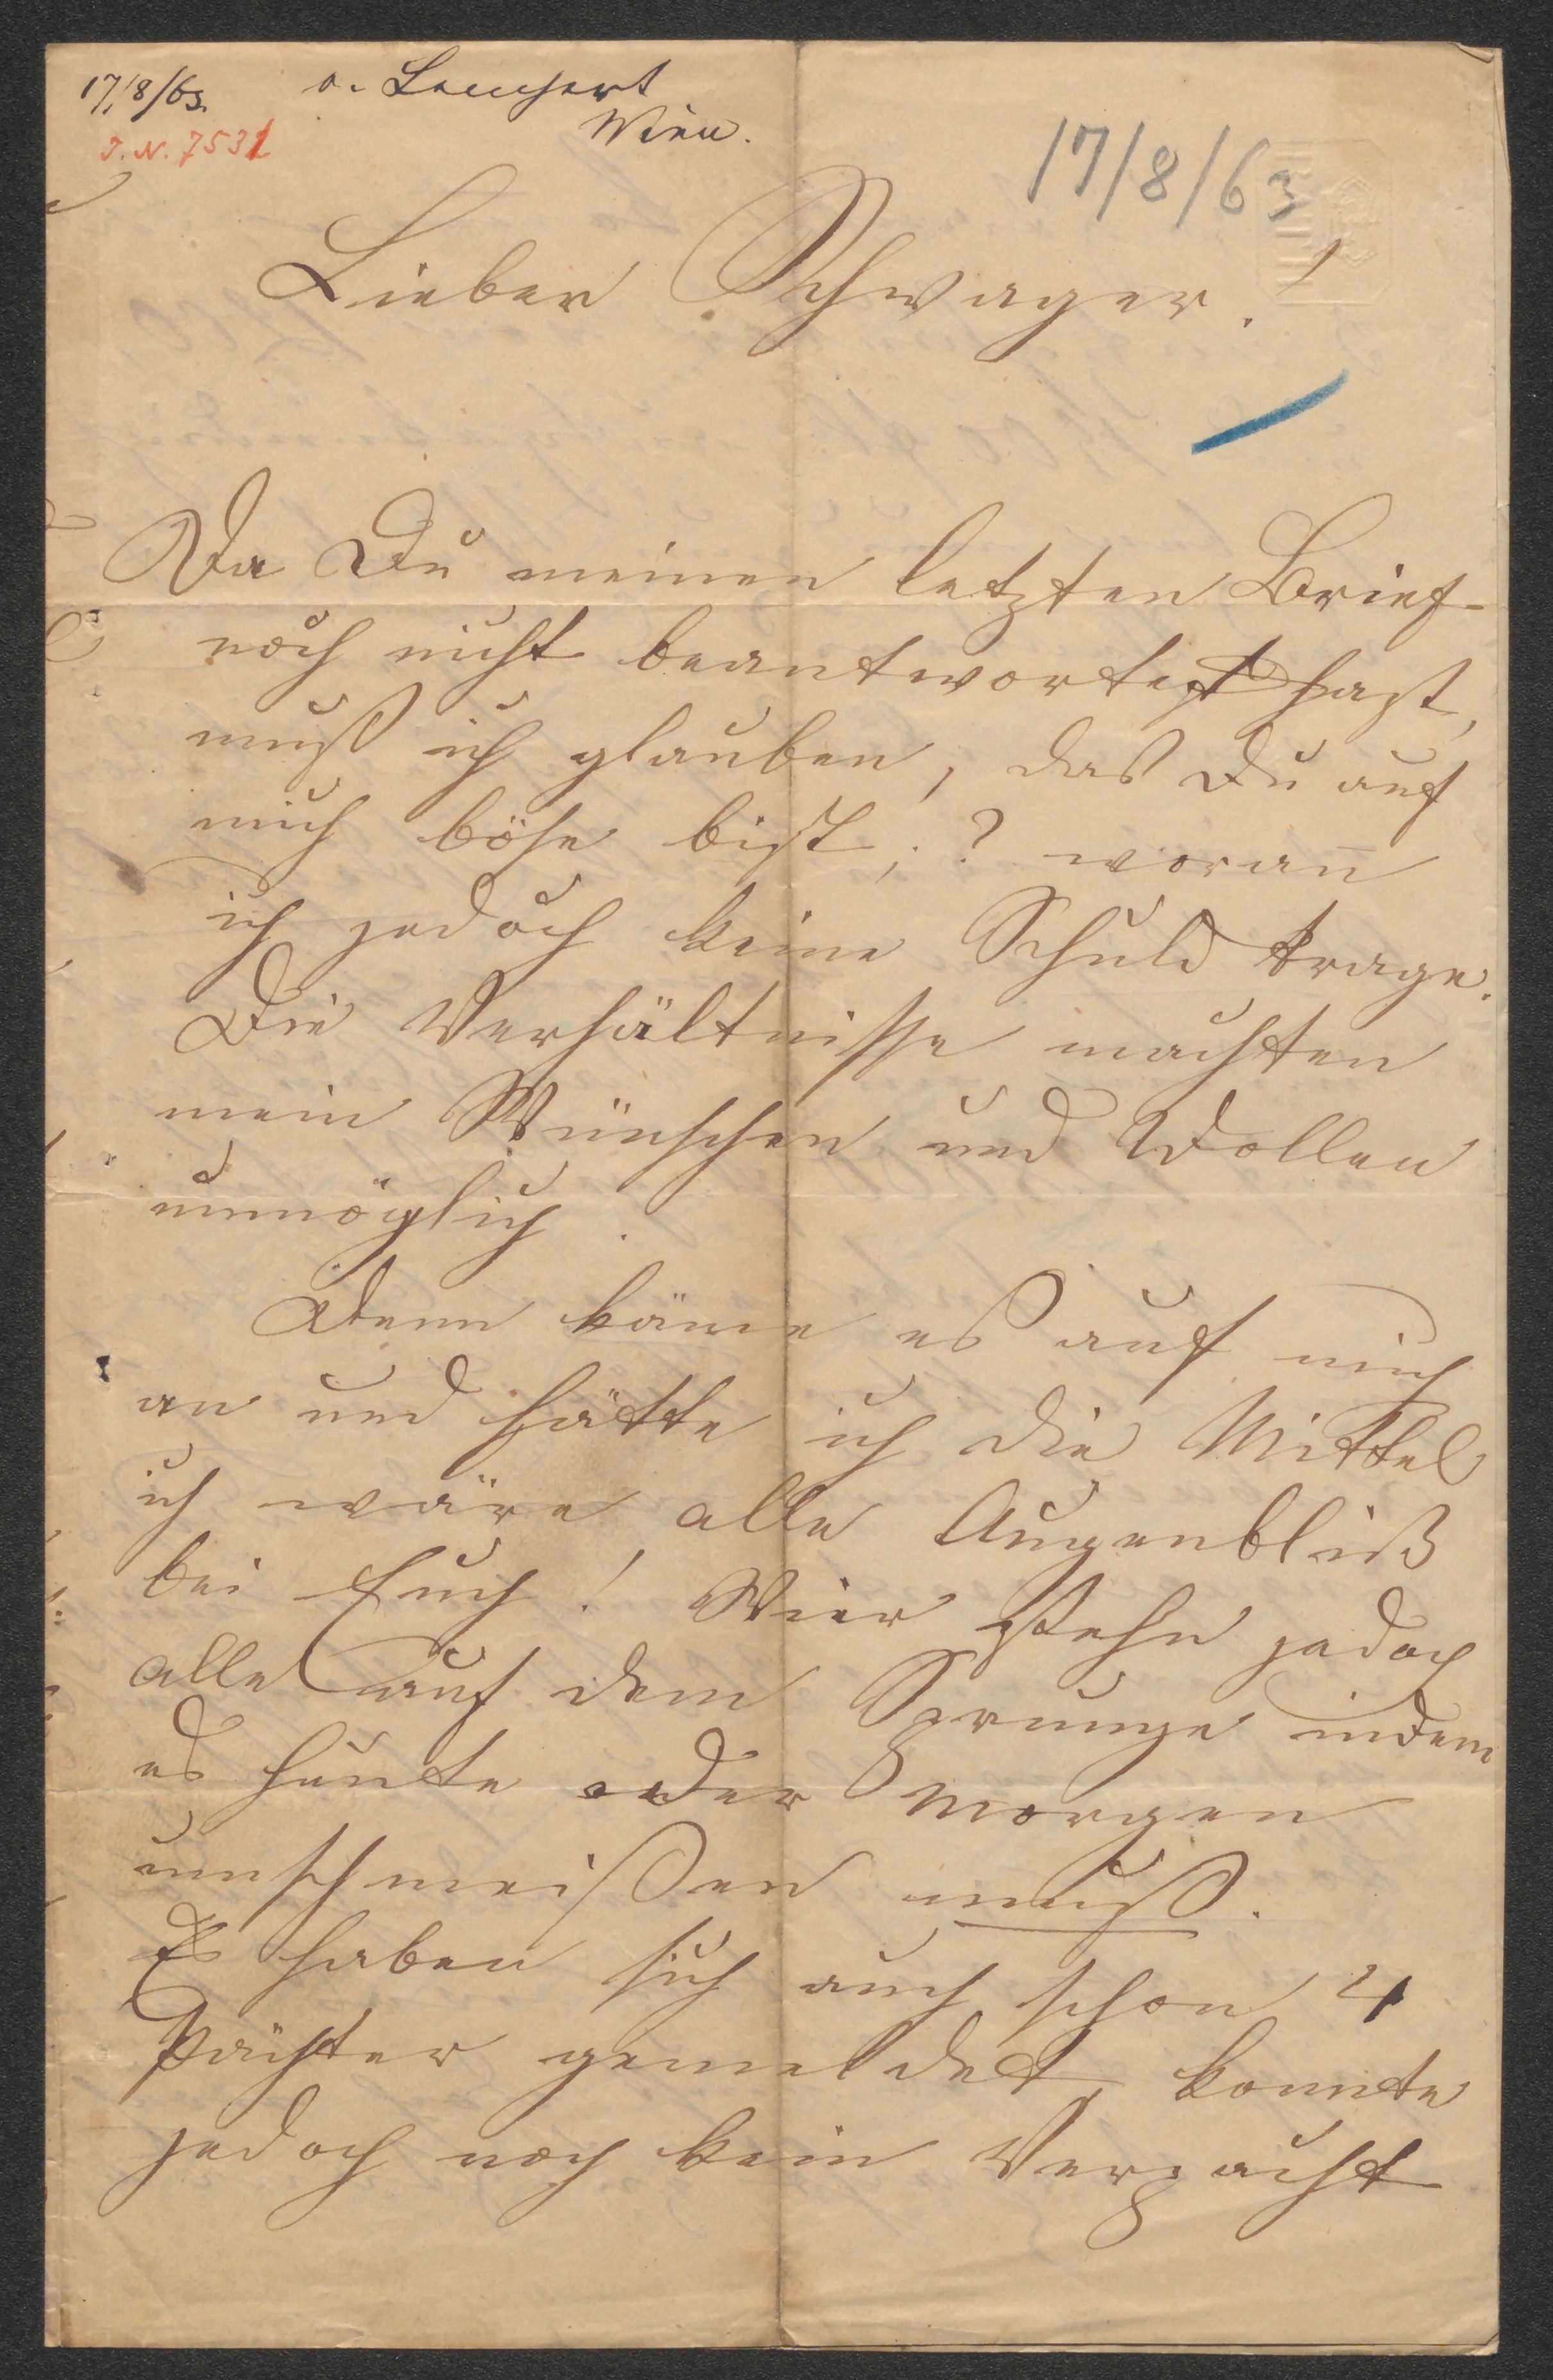 17/8/63. v. Lempert
Wien.
J. N. 7531
17/8/63
Lieber Schwager!
Da Du meinen letzten Brief
noch nicht beantwortet hast,
muß ich glauben, daß Du auf
mich böse bist; ? woran
ich jedoch keine Schuld trage.
Die Verhältnisse machten
mein Wünschen und Wollen
unmöglich.
Denn käme es auf mich
an und hätte ich die Mittel
ich wäre alle Augenblik
bei Euch! Wier stehn jedoch
alle auf dem Sprunge indem
es heute oder morgen
umschmeißen muß.
Es haben sich auch schon 4
Pächter gemeldet, konnte
jedoch noch kein Verpacht